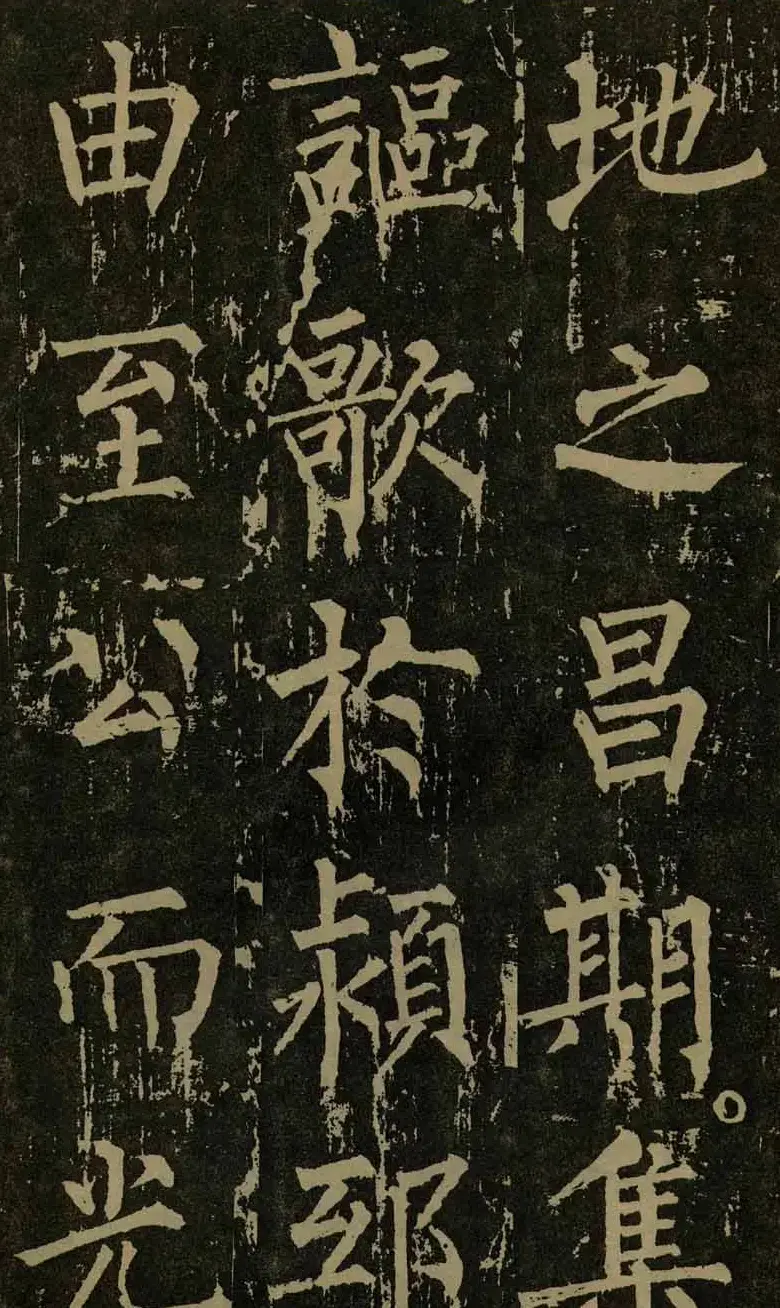 地之昌期。集
謳歌於潁邸
由至公而光